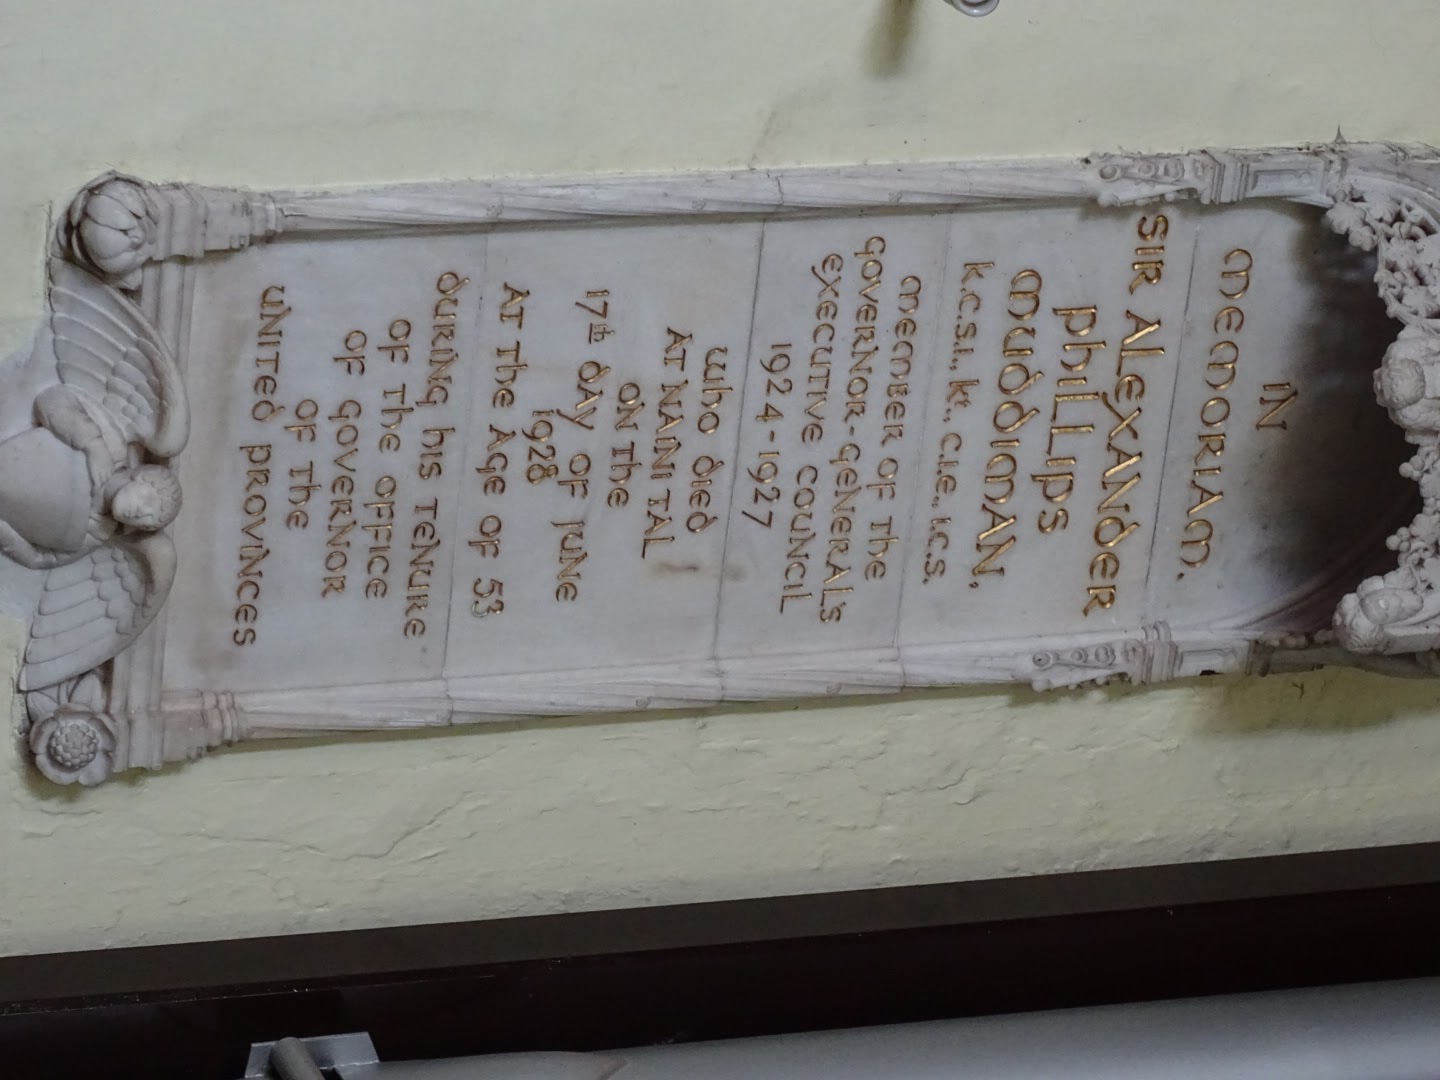 IN
MEMORIAM.
SIR ALEXANDER
PHILLIPS
MUDDIMAN,
K.C.S.I., Kt., C.I.E., I.C.S.
MEMBER OF THE
GOVERNOR-GENERAL'S
EXECUTIVE COUNCIL
1924-1927
WHO DIED
AT NAINI TAL
ON THE
17th DAY OF JUNE
1928
AT THE AGE OF 53
DURING HIS TENURE
OF THE OFFICE
OF GOVERNOR
OF THE
UNITED PROVINCES